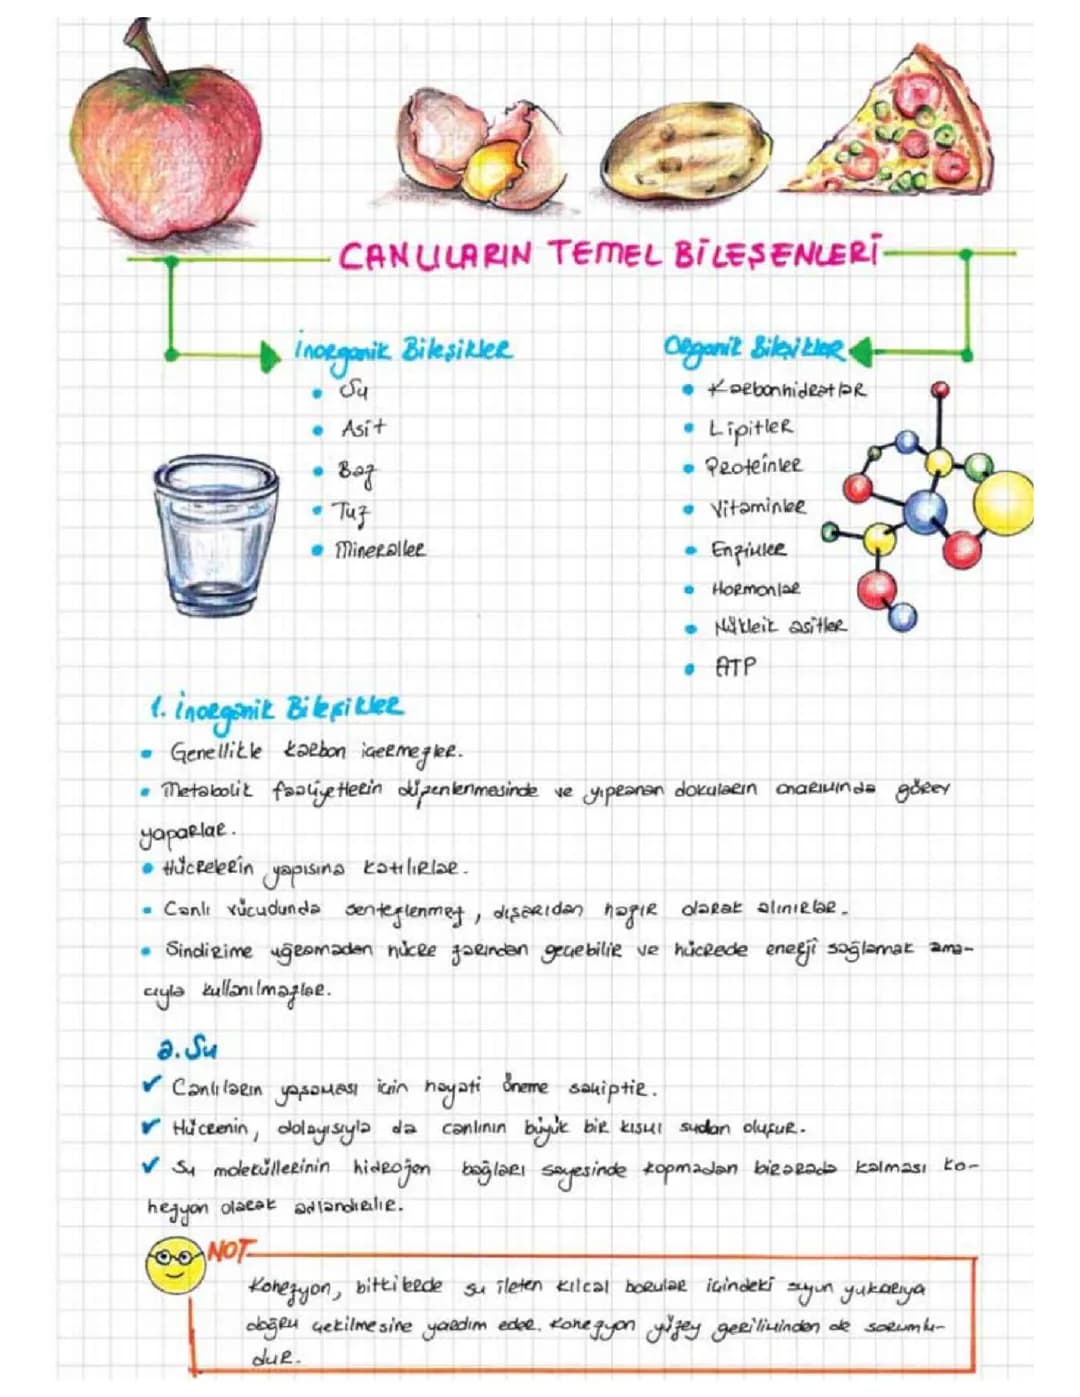 CANLILARIN TEMEL BİLEŞENLERİ
İnorganik Bileşikler
Su
Asit
Baz
Tuz
Mineraller
Organik Bileşikler
Karbonhidratlar
Lipitler
Proteinler
Vitaminler
Enzimler
Hormonlar
Nükleik asitler
ATP
1. İnorganik Bileşikler
Genellikle karbon içermezler.
Metabolik faaliyetlerin düzenlenmesinde ve yıpranan dokuların onarımında görev
yaparlar.
Hücrelerin yapısına katılırlar.
Canlı vücudunda sentezlenmez, dışarıdan hazır olarak alınırlar.
Sindirime uğramadan hücre zarından geçebilir ve hücrede enerji sağlamak ama-
cıyla kullanılmazlar.
a. Su
Canlıların yaşaması için hayati öneme sahiptir.
Hücrenin, dolayısıyla da canlının büyük bir kısmı sudan oluşur.
Su moleküllerinin hidrojen bağları sayesinde kopmadan birarada kalması ko-
hezyon olarak adlandırılır.
NOT
Kohezyon, bitkilerde su ileten kılcal borular içindeki suyun yukarıya
doğru çekilmesine yardım eder. Kohezyon yüzey geriliminden de sorumlu-
dur.